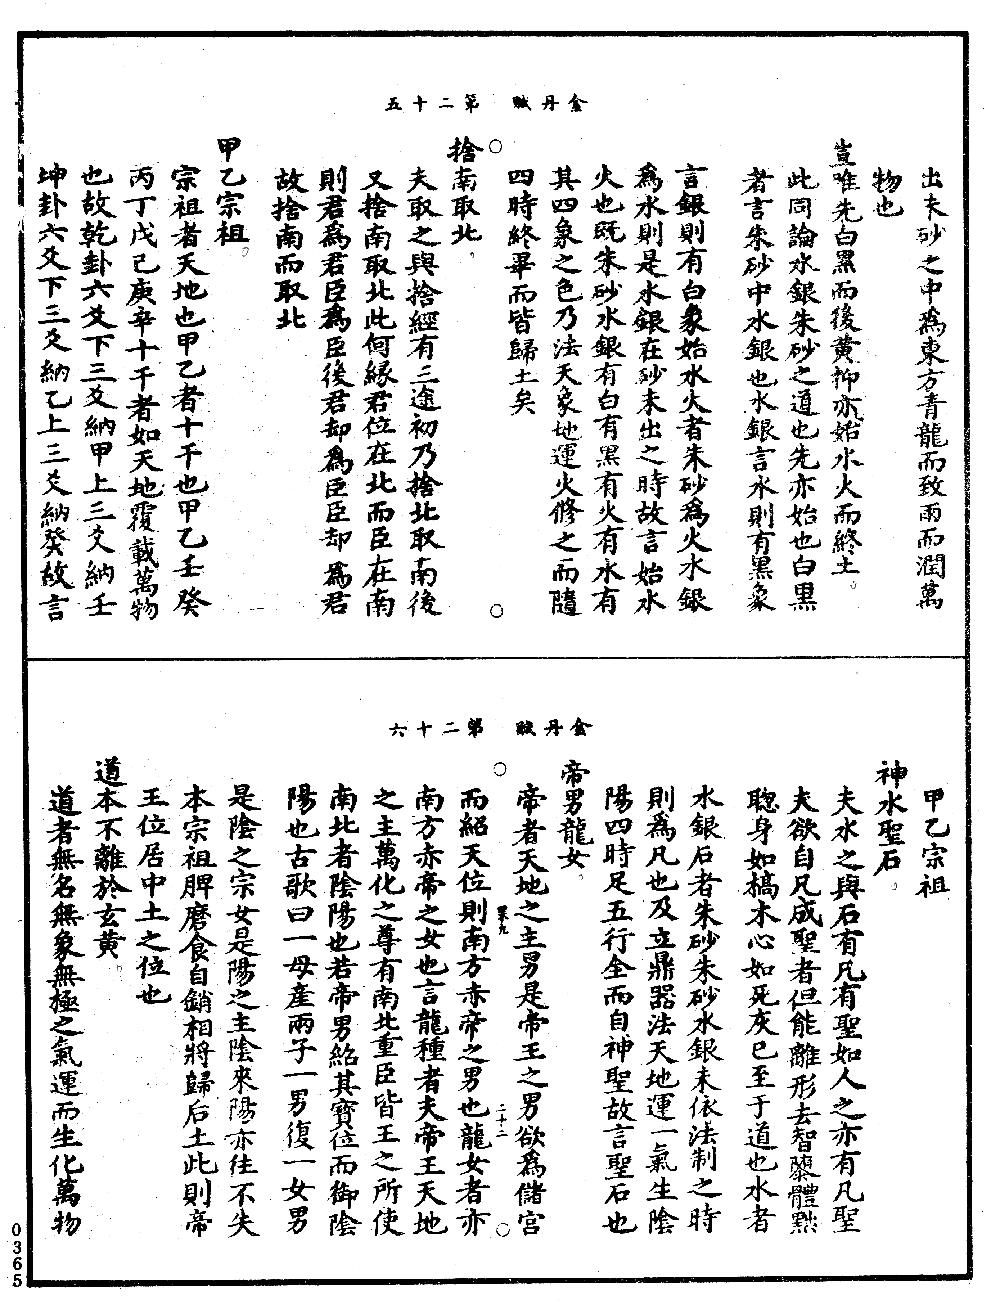 金丹賦　第二十五
出夫砂之中為東方青龍而致雨而潤萬
物也
豈唯先白黑而後黃抑亦始水火而終土。
此同論水銀朱砂之道也先亦始也白黑
者言朱砂中水銀也水銀言水則有黑象
言銀則有白象始水火者朱砂為火水銀
為水則是水銀在砂未出之時故言始水
火也既朱砂水銀有白有黑有火有水有
其四象之色乃法天象地運火修之而隨
四時終畢而皆歸土矣
捨南取北。
夫取之與捨經有三途初乃捨北取南後
又捨南取北此何緣君位在北而臣在南
則君為君臣為臣後君却為臣臣却為君
故捨南而取北
甲乙宗祖。
宗祖者天地也甲乙者十干也甲乙壬癸
丙丁戊己庚辛十干者如天地覆載萬物
也故乾卦六爻下三爻納甲上三爻納壬
坤卦六爻下三爻納乙上三爻納癸故言
金丹賦　第二十六
甲乙宗祖
神水聖石。
夫水之與石有凡有聖如人之亦有凡聖
夫欲自凡成聖者但能離形去智隳體黜
聰身如槁木心如死灰已至于道也水者
水銀石者朱砂朱砂水銀未依法制之時
則為凡也及立鼎器法天地運一氣生陰
陽四時足五行全而自神聖故言聖石也
帝男龍女。
帝者天地之主男是帝王之男欲為儲宮
而紹天位則南方赤帝之男也龍女者亦
南方赤帝之女也言龍種者夫帝王天地
之主萬化之尊有南北重臣皆王之所使
南北者陰陽也若帝男紹其寶位而御陰
陽也古歌曰一母産兩子一男復一女男
是陰之宗女是陽之主陰來陽亦往不失
本宗祖脾磨食自銷相將歸后土此則帝
王位居中土之位也
道本不離於玄黃。
道者無名無象無極之氣運而生化萬物
0365